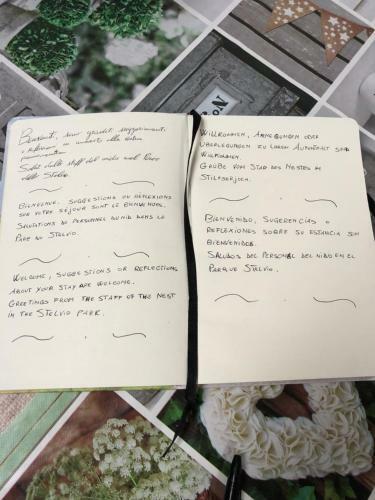 Benvenuti, sono graditi suggerimenti
o riflessioni in merito alla vostra
permanenza.
Saluti dallo staff del nido nel Parco
dello Stelvio.
Bienvenue, suggestions ou réflexions
sur votre séjour sont le bienvenus.
Salutations du personnel du nid dans le
Parc du Stelvio.
Welcome, suggestions or reflections
about your stay are welcome.
Greetings from the staff of the nest
in the Stelvio Park.
Willkommen, Anregungen oder
Überlegungen zu Ihrem Aufenthalt sind
willkommen.
Grüße vom Stab des Nestes im
Stilfserjoch.
Bienvenido, sugerencias o
reflexiones sobre su estancia son
bienvenidos.
Saludos del personal del nido en el
Parque Stelvio.